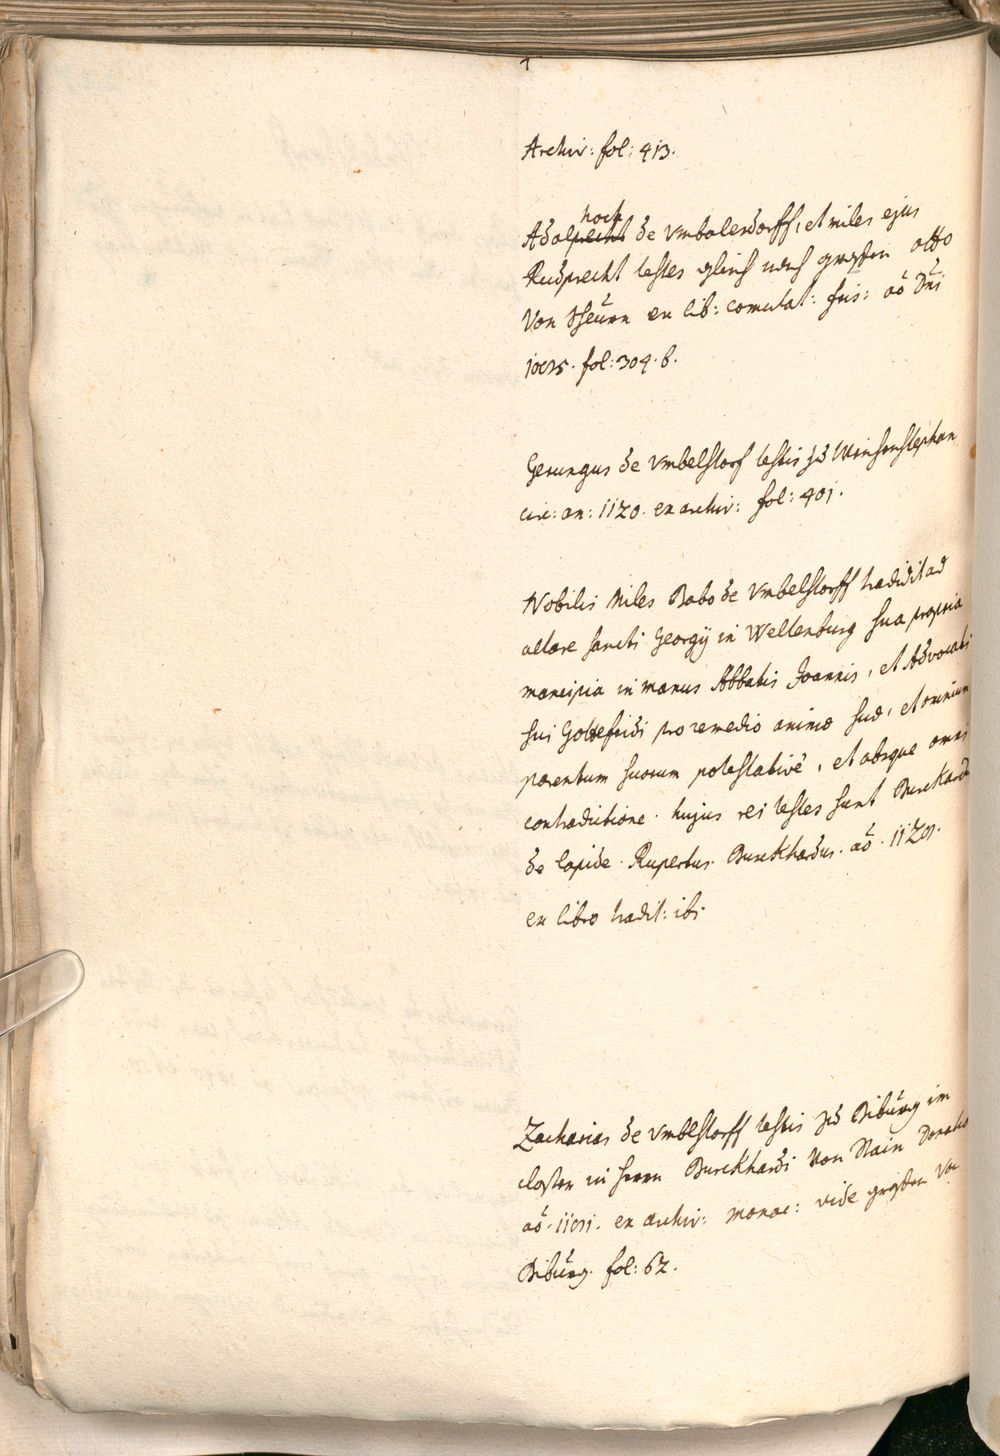 Archiv: fol: 413.
hoch
Adalprecht de Vmbalerdorff, et miles ejus
Rudprecht testes gleich nach graffen otto
Von ex lib: comutat: fris: aõ Dñi
fol: 304. b.
Gerungus de Vmbelstorf testis zu Weihenstephan
circ: an: 1120. ex archiv: fol: 401.
Nobilis Miles Babo de Vmbelstorff tradidit ad
altare sancti Georgÿ in Weltenburg sua propria
mancipia in manus Abbatis Joannis, et Advocati
sui Gottefridi pro remedio animæ suæ, et omnium
parentum suorum potestativè, et absque omni
contradictione. hujus rei testes sunt Burckard
de lapide. Rupertus. Burckhardus. aõ.
ex libro tradit: ibi.
Zacharias de Vmblstorff testis zu Biburg im
closter in herrn Burckhardi Von Stain
aõ. ex archiv: monac: vide graffen Von
Biburg. fol: 62.